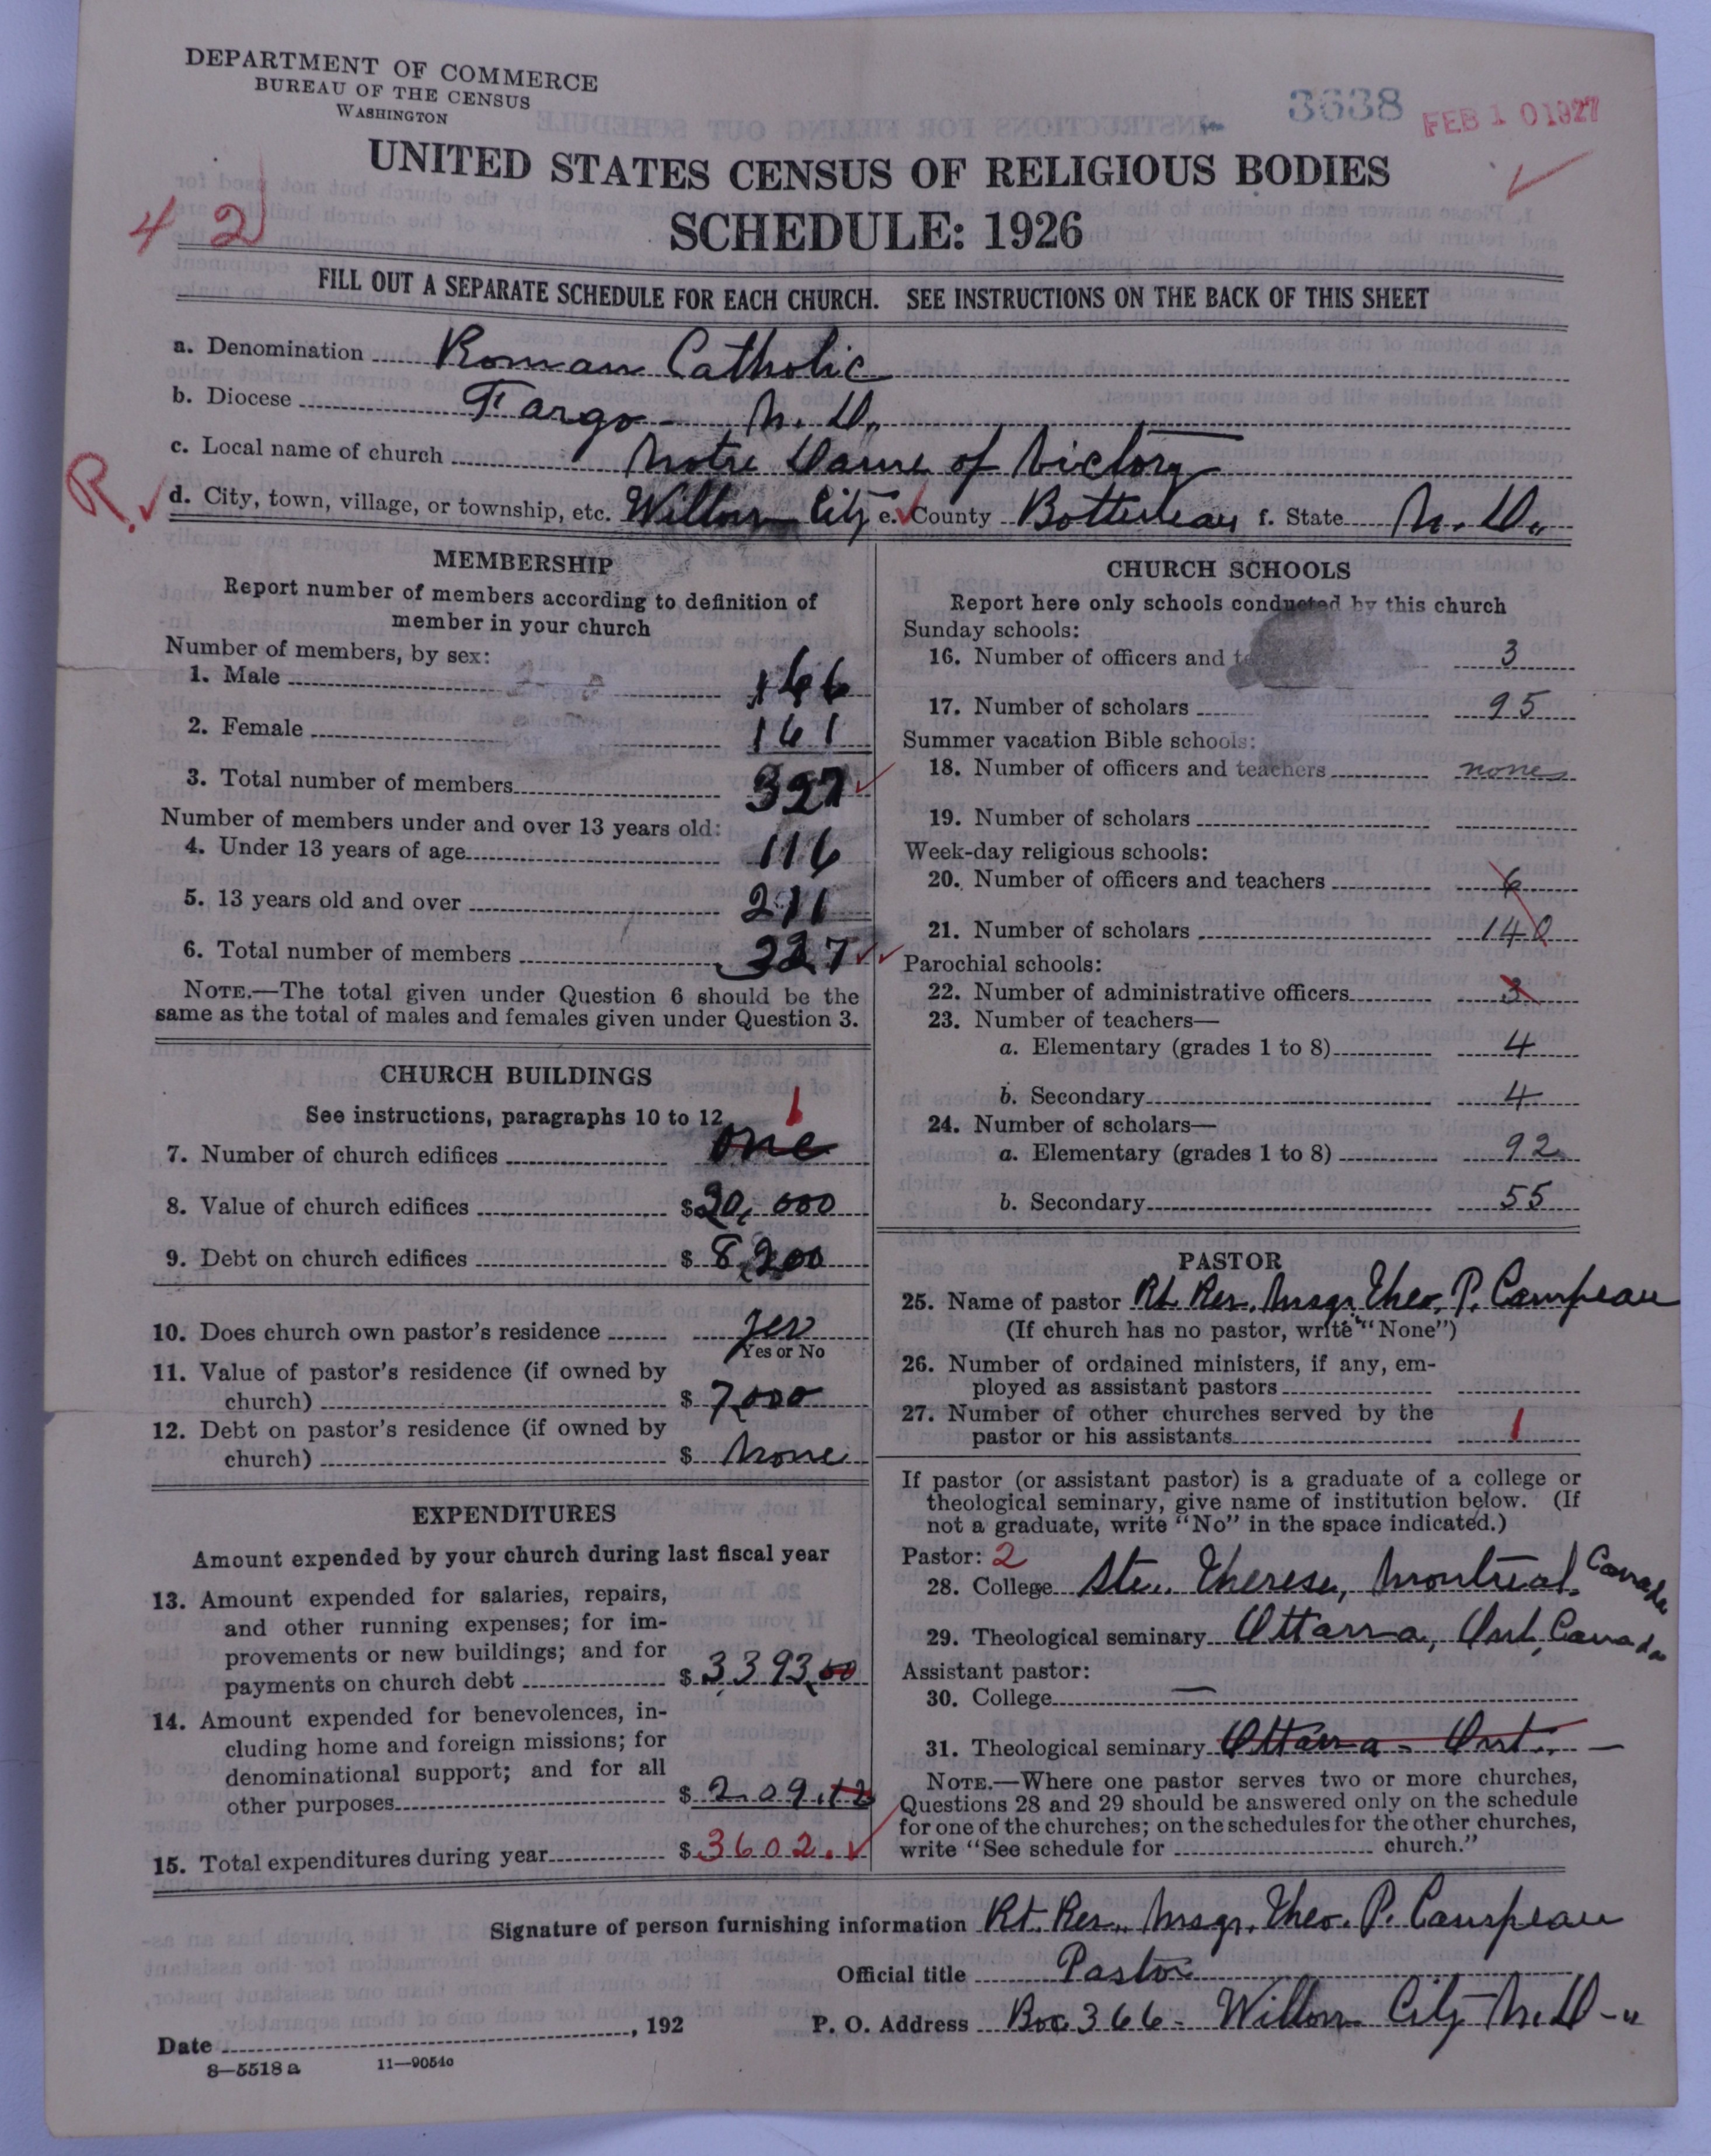 DEPARTMENT OF COMMERCE
BUREAU OF THE CENSUS
WASHINGTON
3638
FEB 10 1927
UNITED STATES CENSUS OF RELIGIOUS BODIES
SCHEDULE: 1926
42
FILL OUT A SEPARATE SCHEDULE FOR EACH CHURCH. SEE INSTRUCTIONS ON THE BACK OF THIS SHEET
a. Denomination Roman Catholic
b. Diocese Fargo - N. D.
c. Local name of church Notre Dame of Victory
R. d. City, town, village, or township, etc. Willow City e. County Bottineau f. State N. D.
MEMBERSHIP
Report number of members according to definition of
member in your church
Number of members, by sex:
1. Male 166
2. Female 161
3. Total number of members 327
Number of members under and over 13 years old:
4. Under 13 years of age 116
5. 13 years old and over 211
6. Total number of members 327
NOTE.—The total given under Question 6 should be the
same as the total of males and females given under Question 3.
CHURCH BUILDINGS
See instructions, paragraphs 10 to 12
1
7. Number of church edifices one
8. Value of church edifices $ 20,000
9. Debt on church edifices $ 8,200
10. Does church own pastor's residence yes
Yes or No
11. Value of pastor's residence (if owned by
church) $ 7,000
12. Debt on pastor's residence (if owned by
church) $ None
EXPENDITURES
Amount expended by your church during last fiscal year
13. Amount expended for salaries, repairs,
and other running expenses; for im-
provements or new buildings; and for
payments on church debt $ 3,393.00
14. Amount expended for benevolences, in-
cluding home and foreign missions; for
denominational support; and for all
other purposes $ 209.12
15. Total expenditures during year $ 3602.
CHURCH SCHOOLS
Report here only schools conducted by this church
Sunday schools:
16. Number of officers and 3
17. Number of scholars 95
Summer vacation Bible schools:
18. Number of officers and teachers none
19. Number of scholars
Week-day religious schools:
20. Number of officers and teachers 6
21. Number of scholars 140
Parochial schools:
22. Number of administrative officers 3
23. Number of teachers—
a. Elementary (grades 1 to 8) 4
b. Secondary 4
24. Number of scholars—
a. Elementary (grades 1 to 8) 92
b. Secondary 55
PASTOR
25. Name of pastor Rt. Rev. Msgr. Theo. P. Campeau
(If church has no pastor, write "None")
26. Number of ordained ministers, if any, em-
ployed as assistant pastors
27. Number of other churches served by the
pastor or his assistants 1
If pastor (or assistant pastor) is a graduate of a college or
theological seminary, give name of institution below. (If
not a graduate, write "No" in the space indicated.)
Pastor: 2
28. College Ste. Therese, Montreal, Canada
29. Theological seminary Ottawa, Ont, Canada
Assistant pastor:
30. College —
31. Theological seminary Ottawa - Ont. —
NOTE.—Where one pastor serves two or more churches,
Questions 28 and 29 should be answered only on the schedule
for one of the churches; on the schedules for the other churches,
write "See schedule for church."
Signature of person furnishing information Rt. Rev. Msgr. Theo. P. Campeau
Official title Pastor
Date , 192
P. O. Address Box 366 - Willow City N. D.
8—5518 a 11—9054c